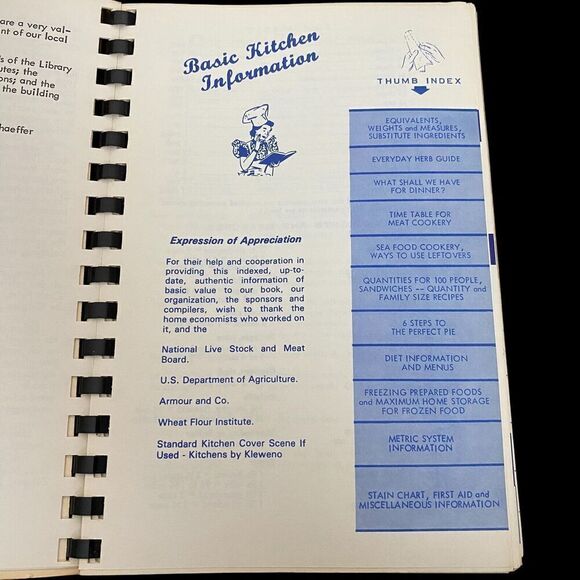 are a very val-
nt of our local
s of the Library
utes; the
ons; and the
the building
haeffer
Basic Kitchen
Information
Expression of Appreciation
For their help and cooperation in
providing this indexed, up-to-
date, authentic information of
basic value to our book, our
organization, the sponsors and
compilers, wish to thank the
home economists who worked on
it, and the
National Live Stock and Meat
Board.
U.S. Department of Agriculture.
Armour and Co.
Wheat Flour Institute.
Standard Kitchen Cover Scene If
Used - Kitchens by Kleweno
THUMB INDEX
EQUIVALENTS,
WEIGHTS and MEASURES,
SUBSTITUTE INGREDIENTS
EVERYDAY HERB GUIDE
WHAT SHALL WE HAVE
FOR DINNER?
TIME TABLE FOR
MEAT COOKERY
SEA FOOD COOKERY,
WAYS TO USE LEFTOVERS
QUANTITIES FOR 100 PEOPLE,
SANDWICHES -- QUANTITY and
FAMILY SIZE RECIPES
6 STEPS TO
THE PERFECT PIE
DIET INFORMATION
AND MENUS
FREEZING PREPARED FOODS
and MAXIMUM HOME STORAGE
FOR FROZEN FOOD
METRIC SYSTEM
INFORMATION
STAIN CHART, FIRST AID and
MISCELLANEOUS INFORMATION